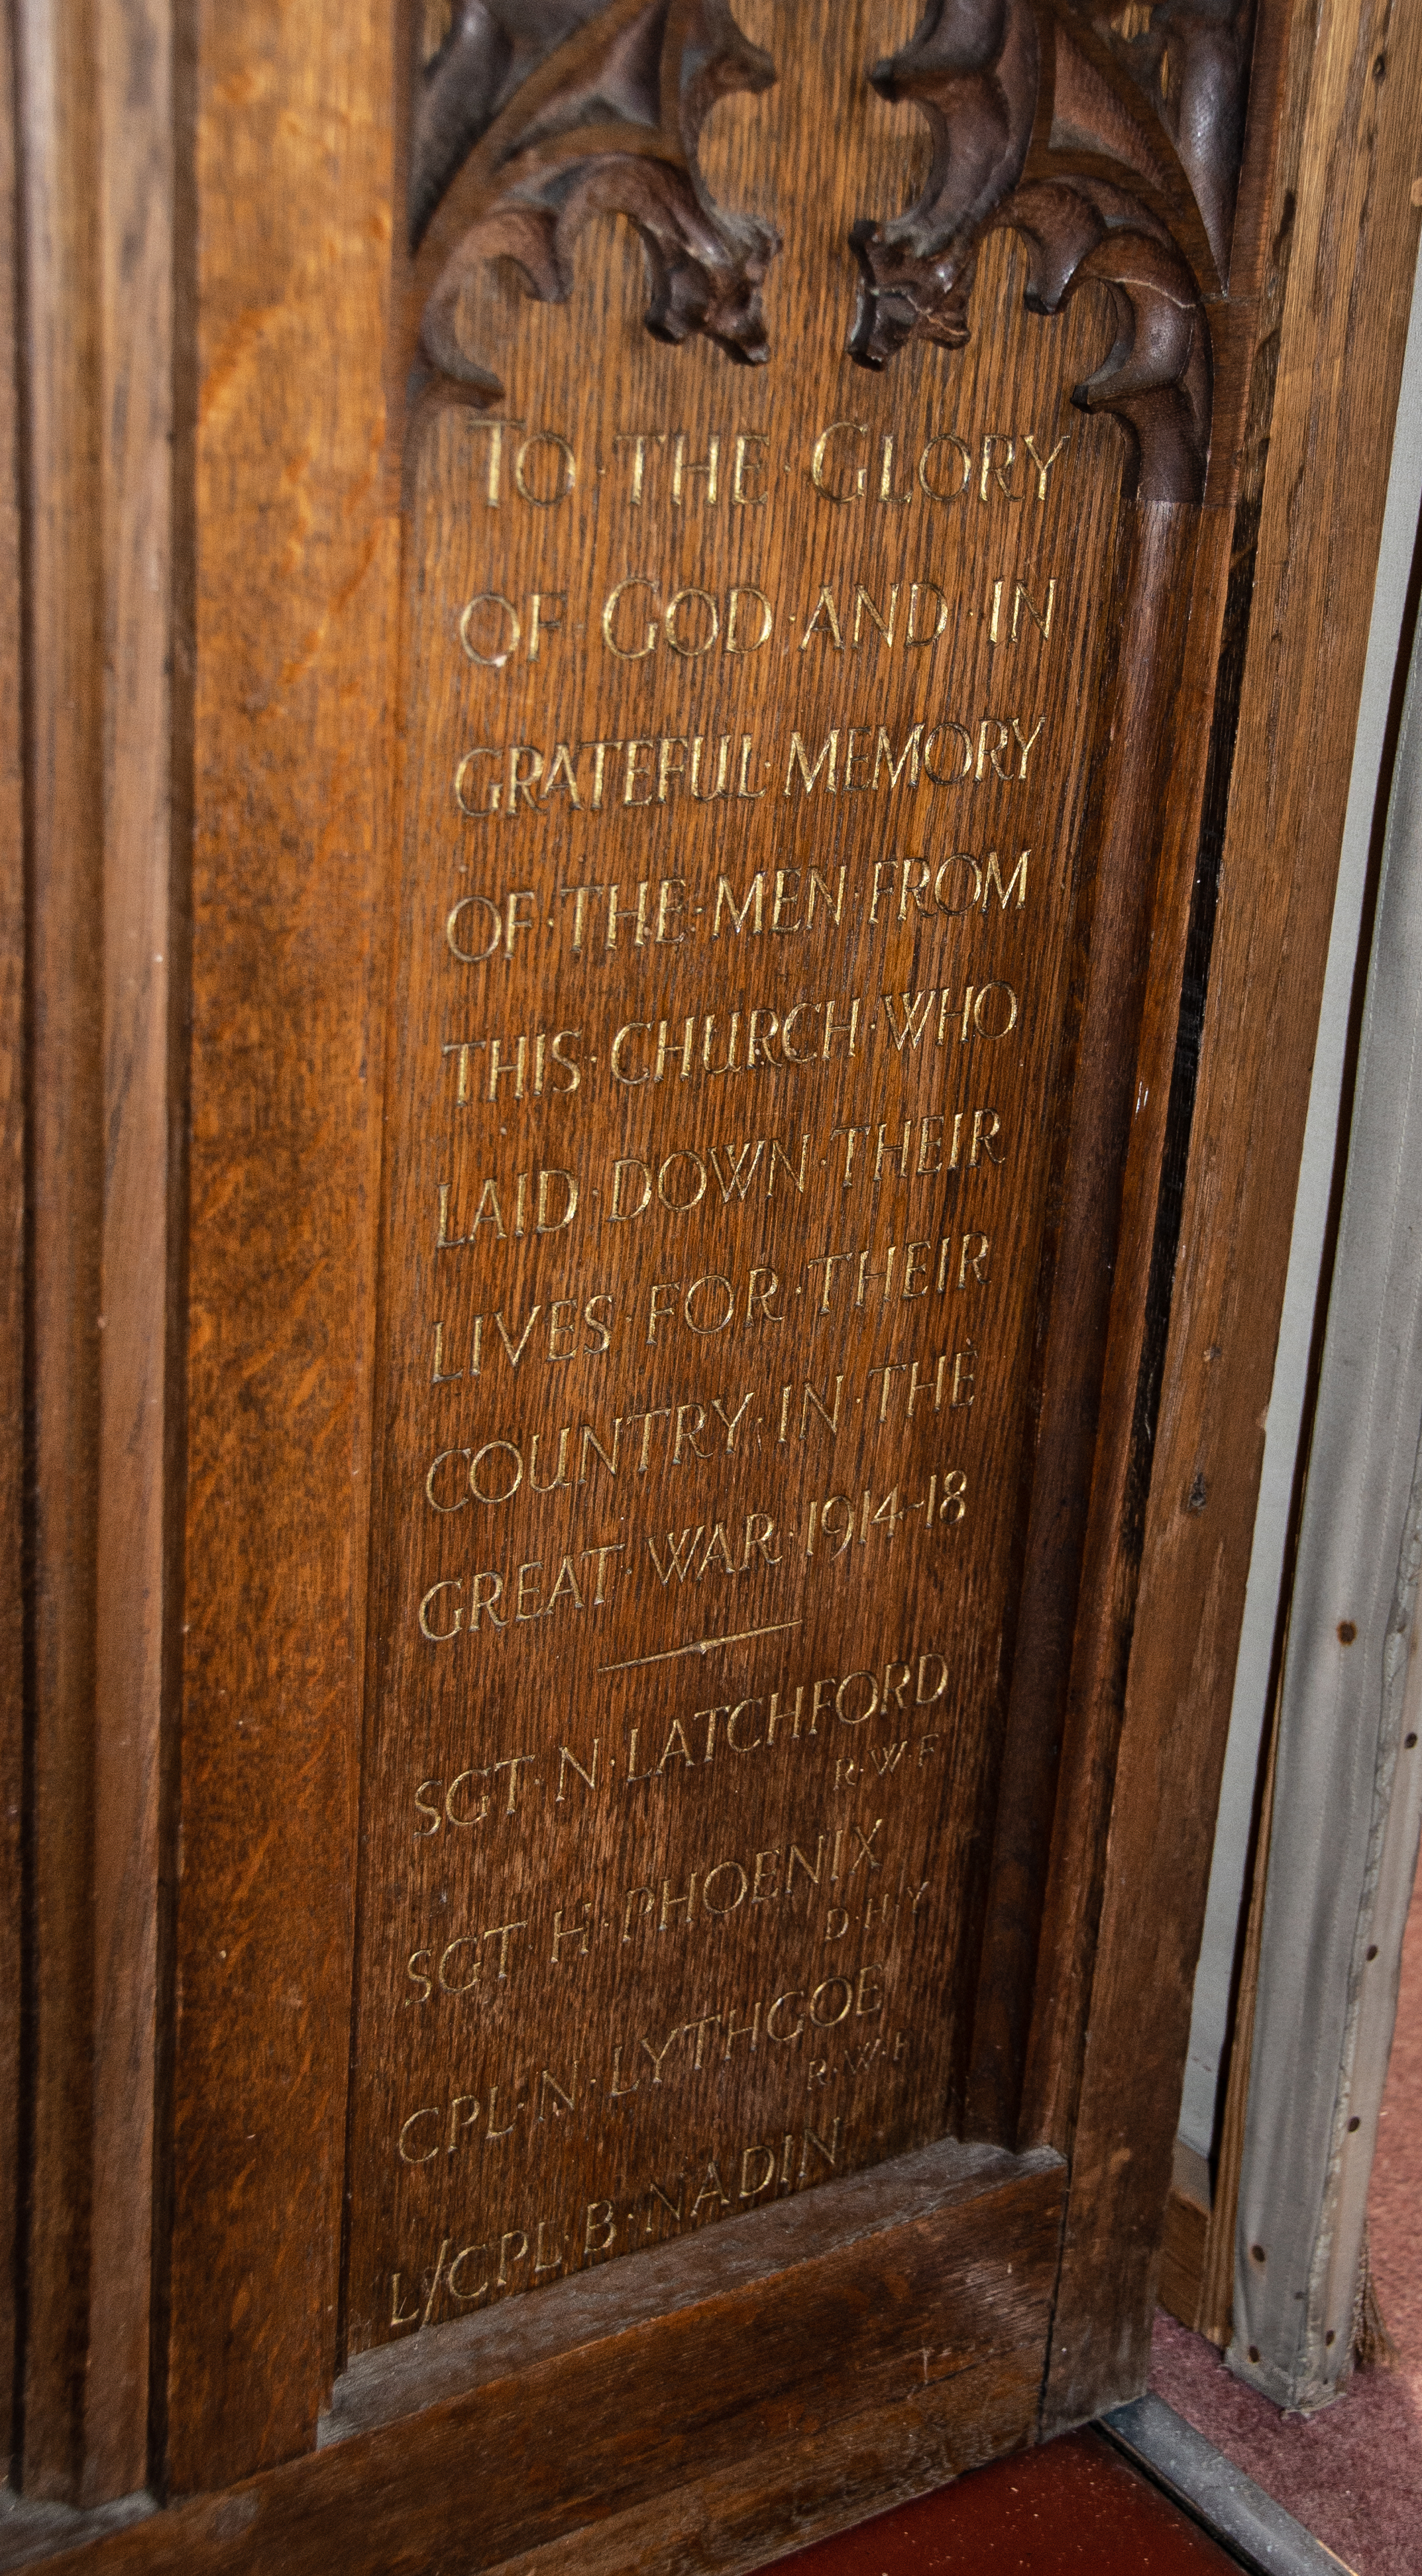 TO·THE·GLORY
OF·GOD·AND·IN
GRATEFUL·MEMORY
OF·THE·MEN·FROM
THIS·CHURCH·WHO
LAID·DOWN·THEIR
LIVES·FOR·THEIR
COUNTRY·IN·THE
GREAT·WAR·1914-18
SGT·N·LATCHFORD
R·W·F
SGT·H·PHOENIX
D·H·Y
CPL·N·LYTHGOE
R·W·F
L/CPL·B·NADIN